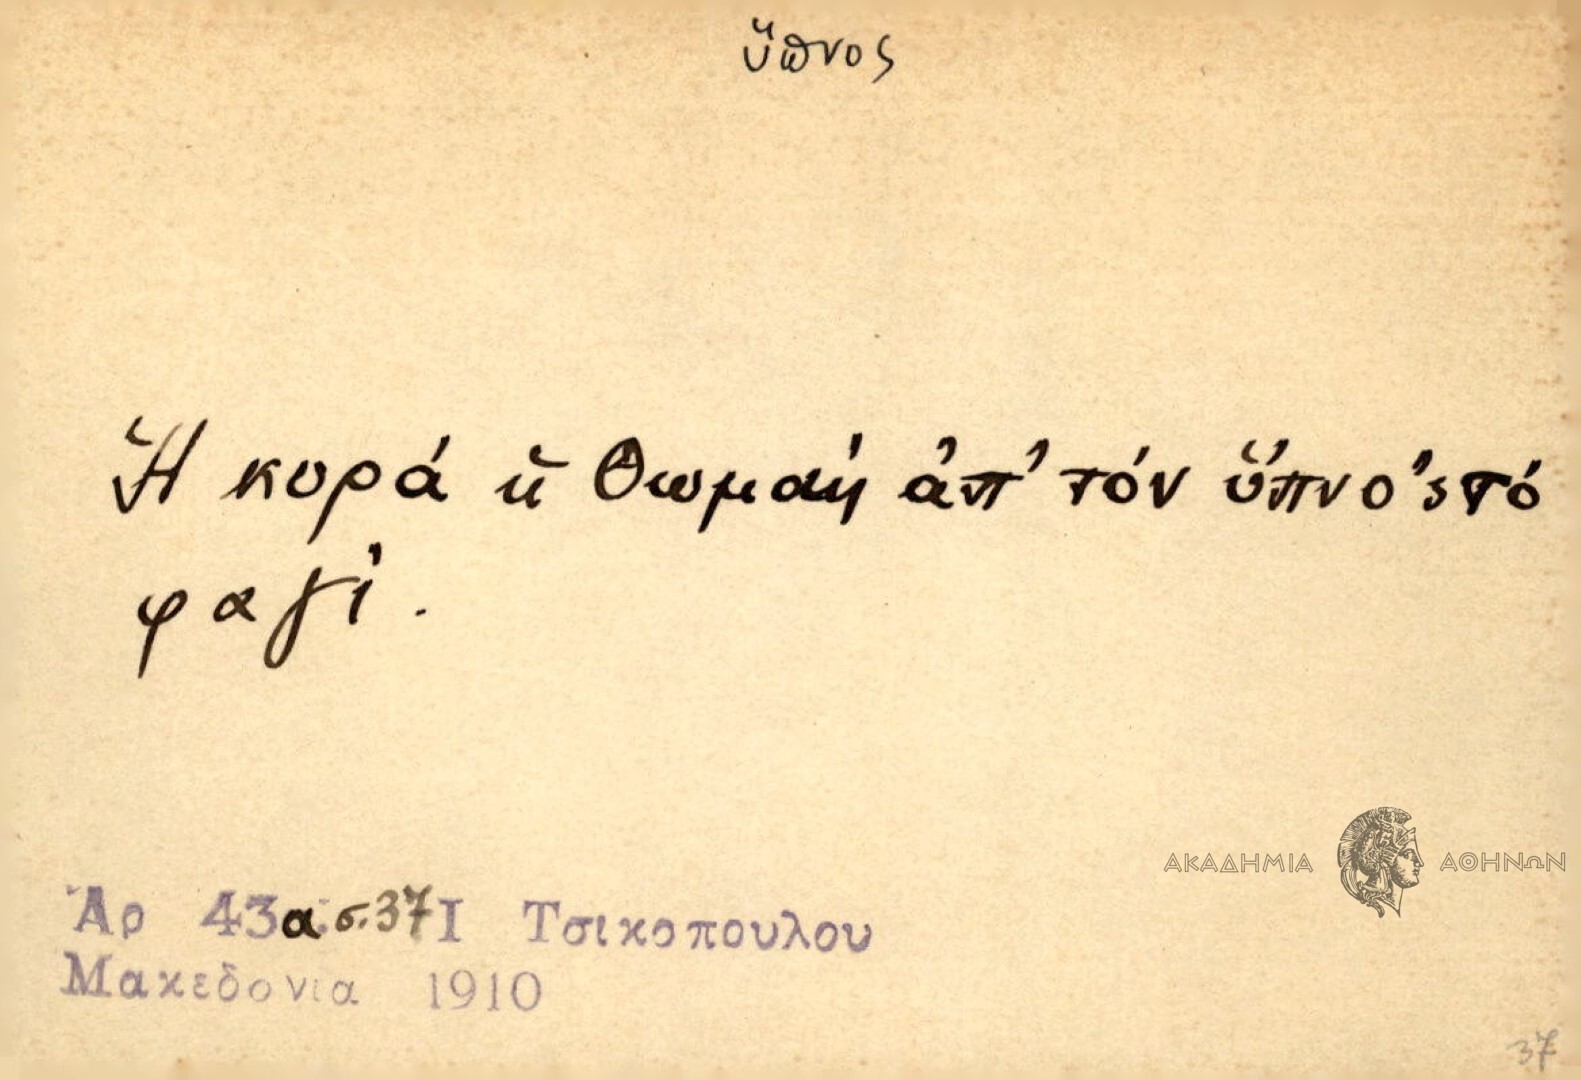 ὕπνος
Ἡ κυρά ἡ Θωμαή ἀπ' τόν ὕπνο 'ς τό
φαγί.
ΑΚΑΔΗΜΙΑ ΑΘΗΝΩΝ
Ἀρ 43α σ.37 Ι Τσικοπουλου
Μακεδονια 1910
37